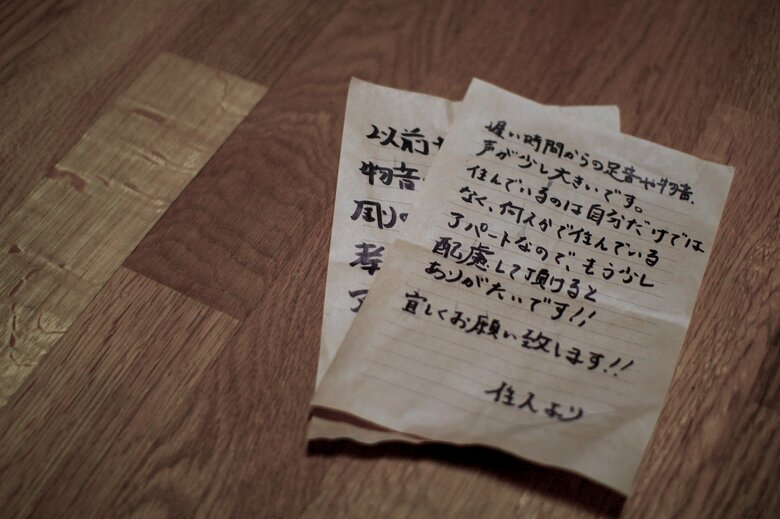 遅い時間からの足音や物音、
声が少し大きいです。
住んでいるのは自分だけでは
なく、何人かで住んでいる
アパートなので、もう少し
配慮して頂けると
ありがたいです!!
宜しくお願い致します!!
住人より
以前
物音
周り